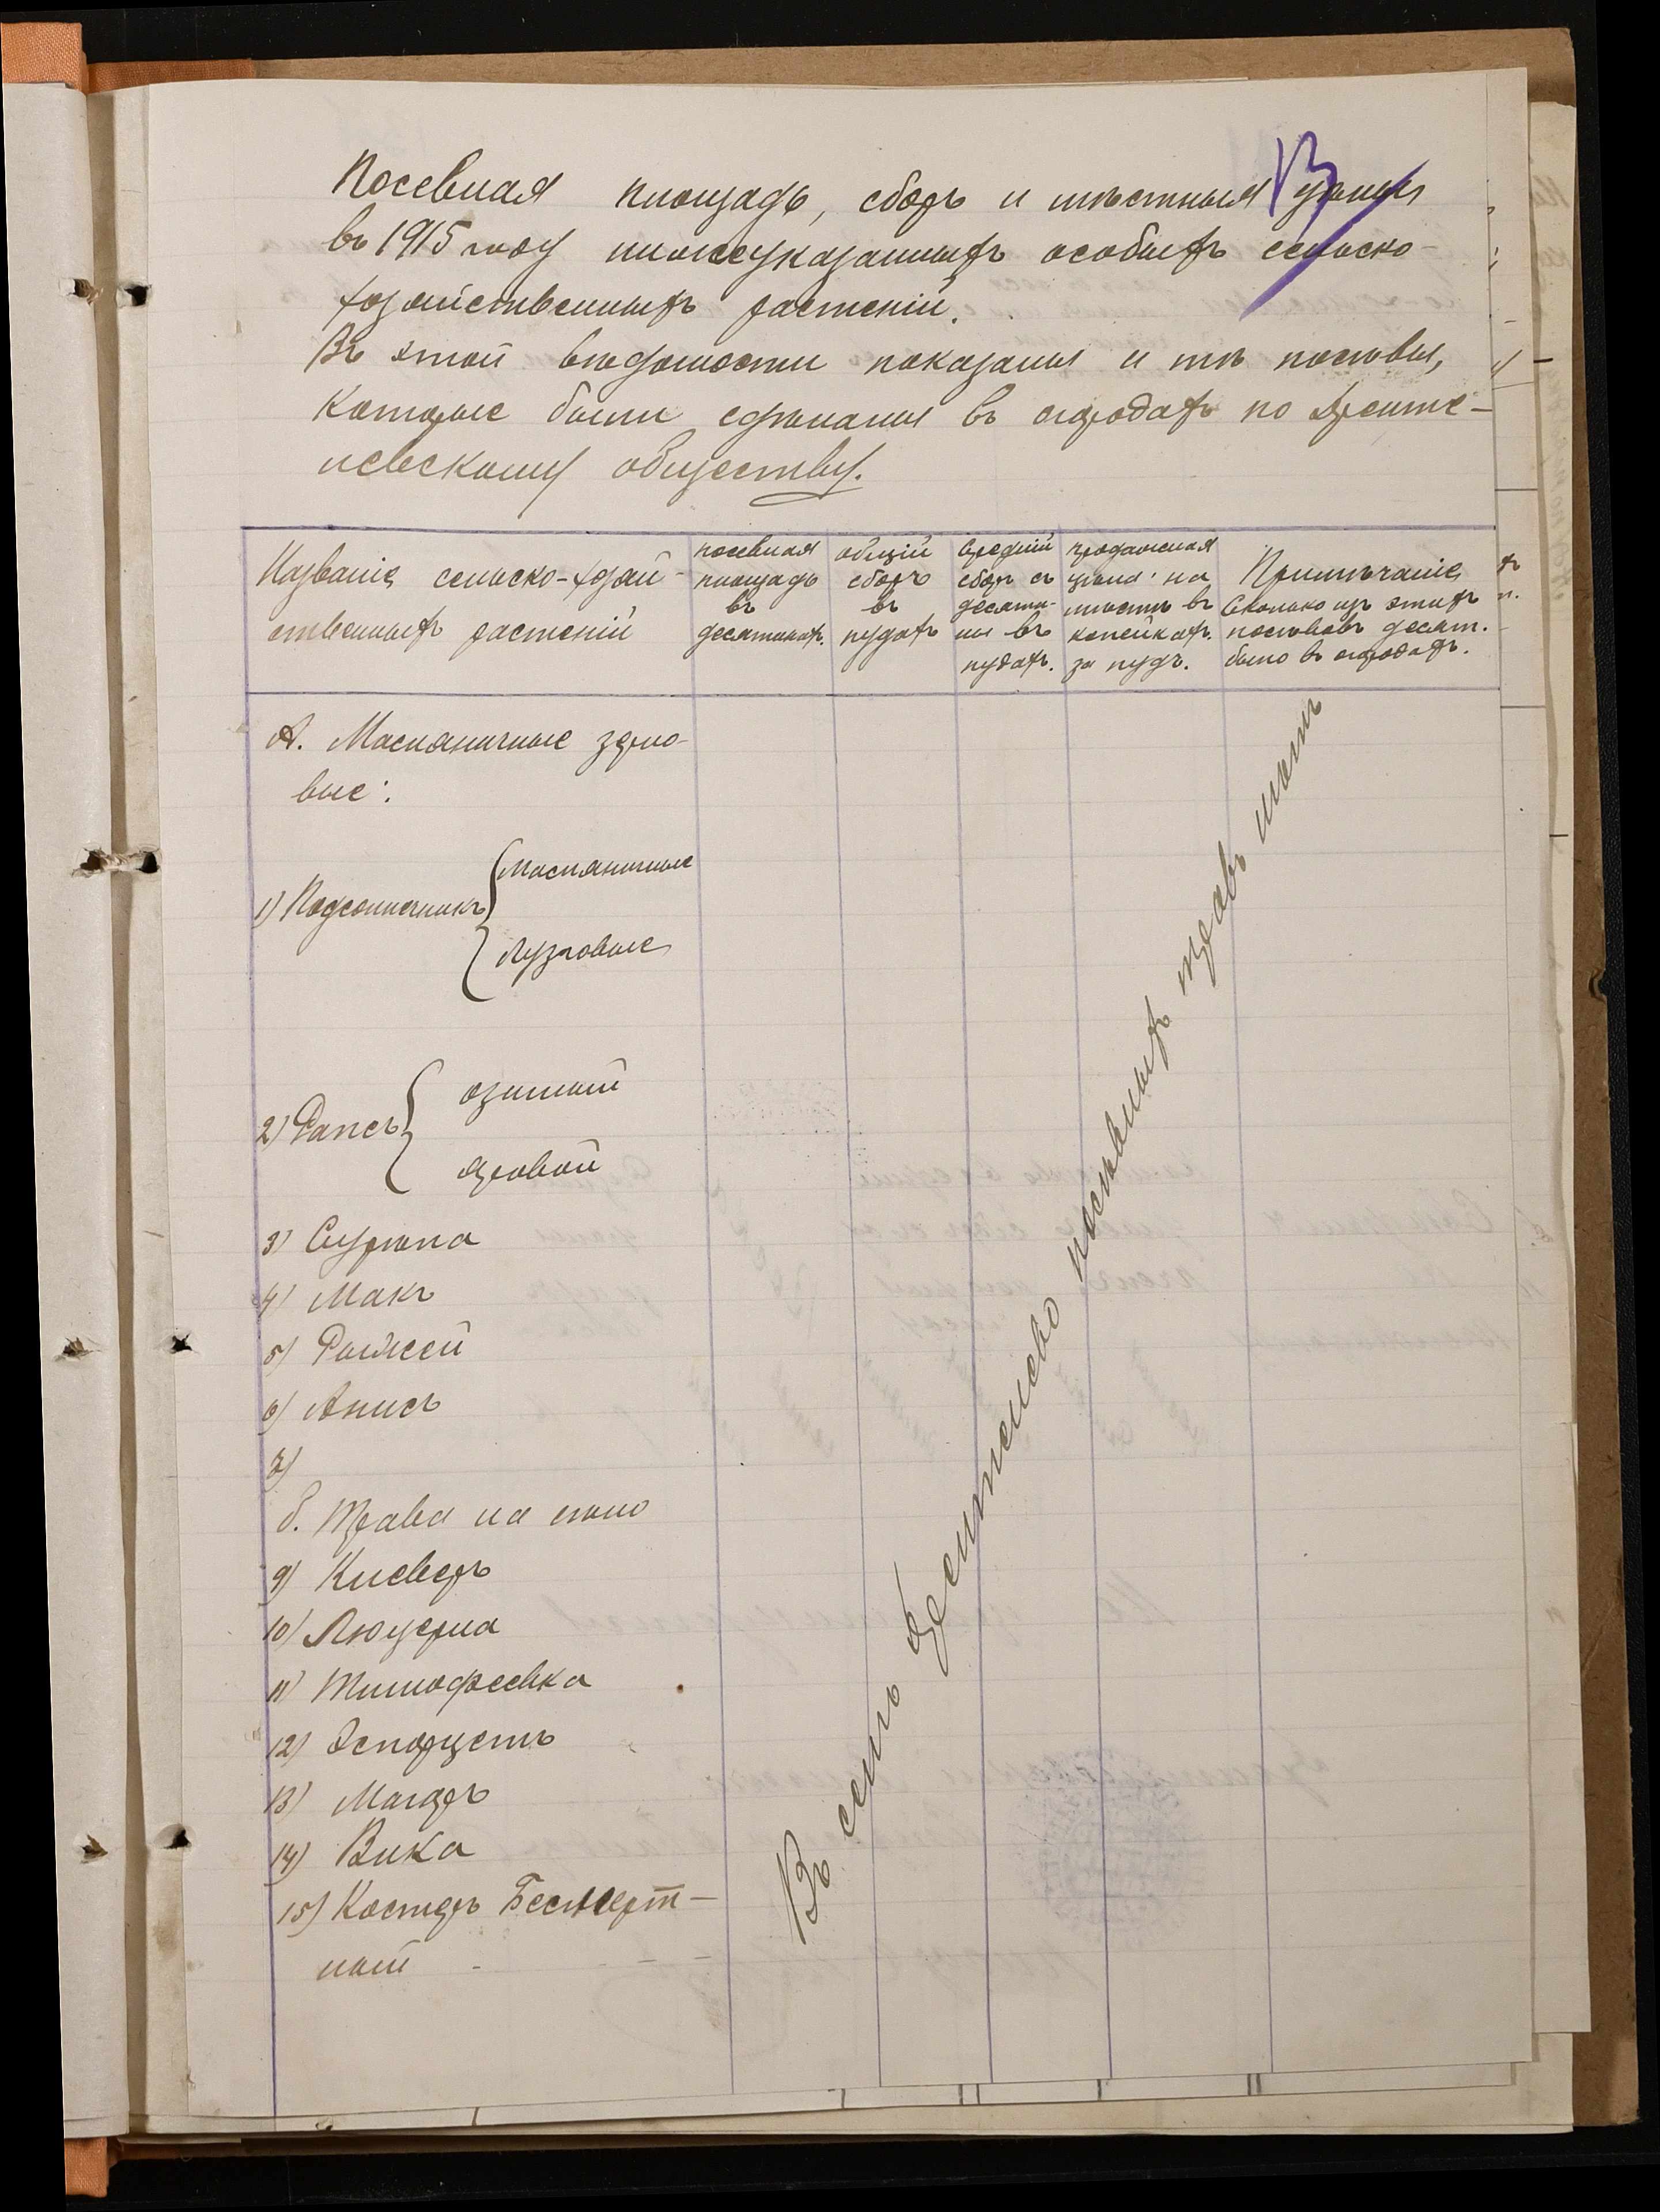 13
Посевная площадь, сборъ и мѣстныя цѣны
въ 1915 году нижеуказанныхъ особыхъ сельско-
хозяйственныхъ растеній.
Въ этой вѣдомости показаны и тѣ посѣвы,
которые были сдѣланы въ огородахъ по
обществу.
Названіе сельско-хозяй-
ственныхъ растеній
посевная
площадь
въ
десятинахъ.
общій
сборъ
въ
пудахъ
средній
сборъ съ
десяти-
ны въ
пудахъ.
продажная
цѣна на
мѣстѣ въ
копейкахъ.
за пудъ.
Примѣчаніе
Сколько изъ этихъ
посѣвовъ десят.
было въ огородахъ.
А. Масляничные зерно-
вые:
1) Подсолнечникъ
Масляничные
Лузговые
2) Рапсъ
озимый
яровой
3) Сурѣпа
4) Макъ
5) Рыжей
6) Анисъ
8)
б. Трава на сѣно
9) Клеверъ
10) Люцерна
11) Тимофеевка
12) Эспарцетъ
13) Могаръ
14) Вика
15) Костеръ Бессмерт-
ный
Въ селѣ посѣвныхъ травъ нѣтъ